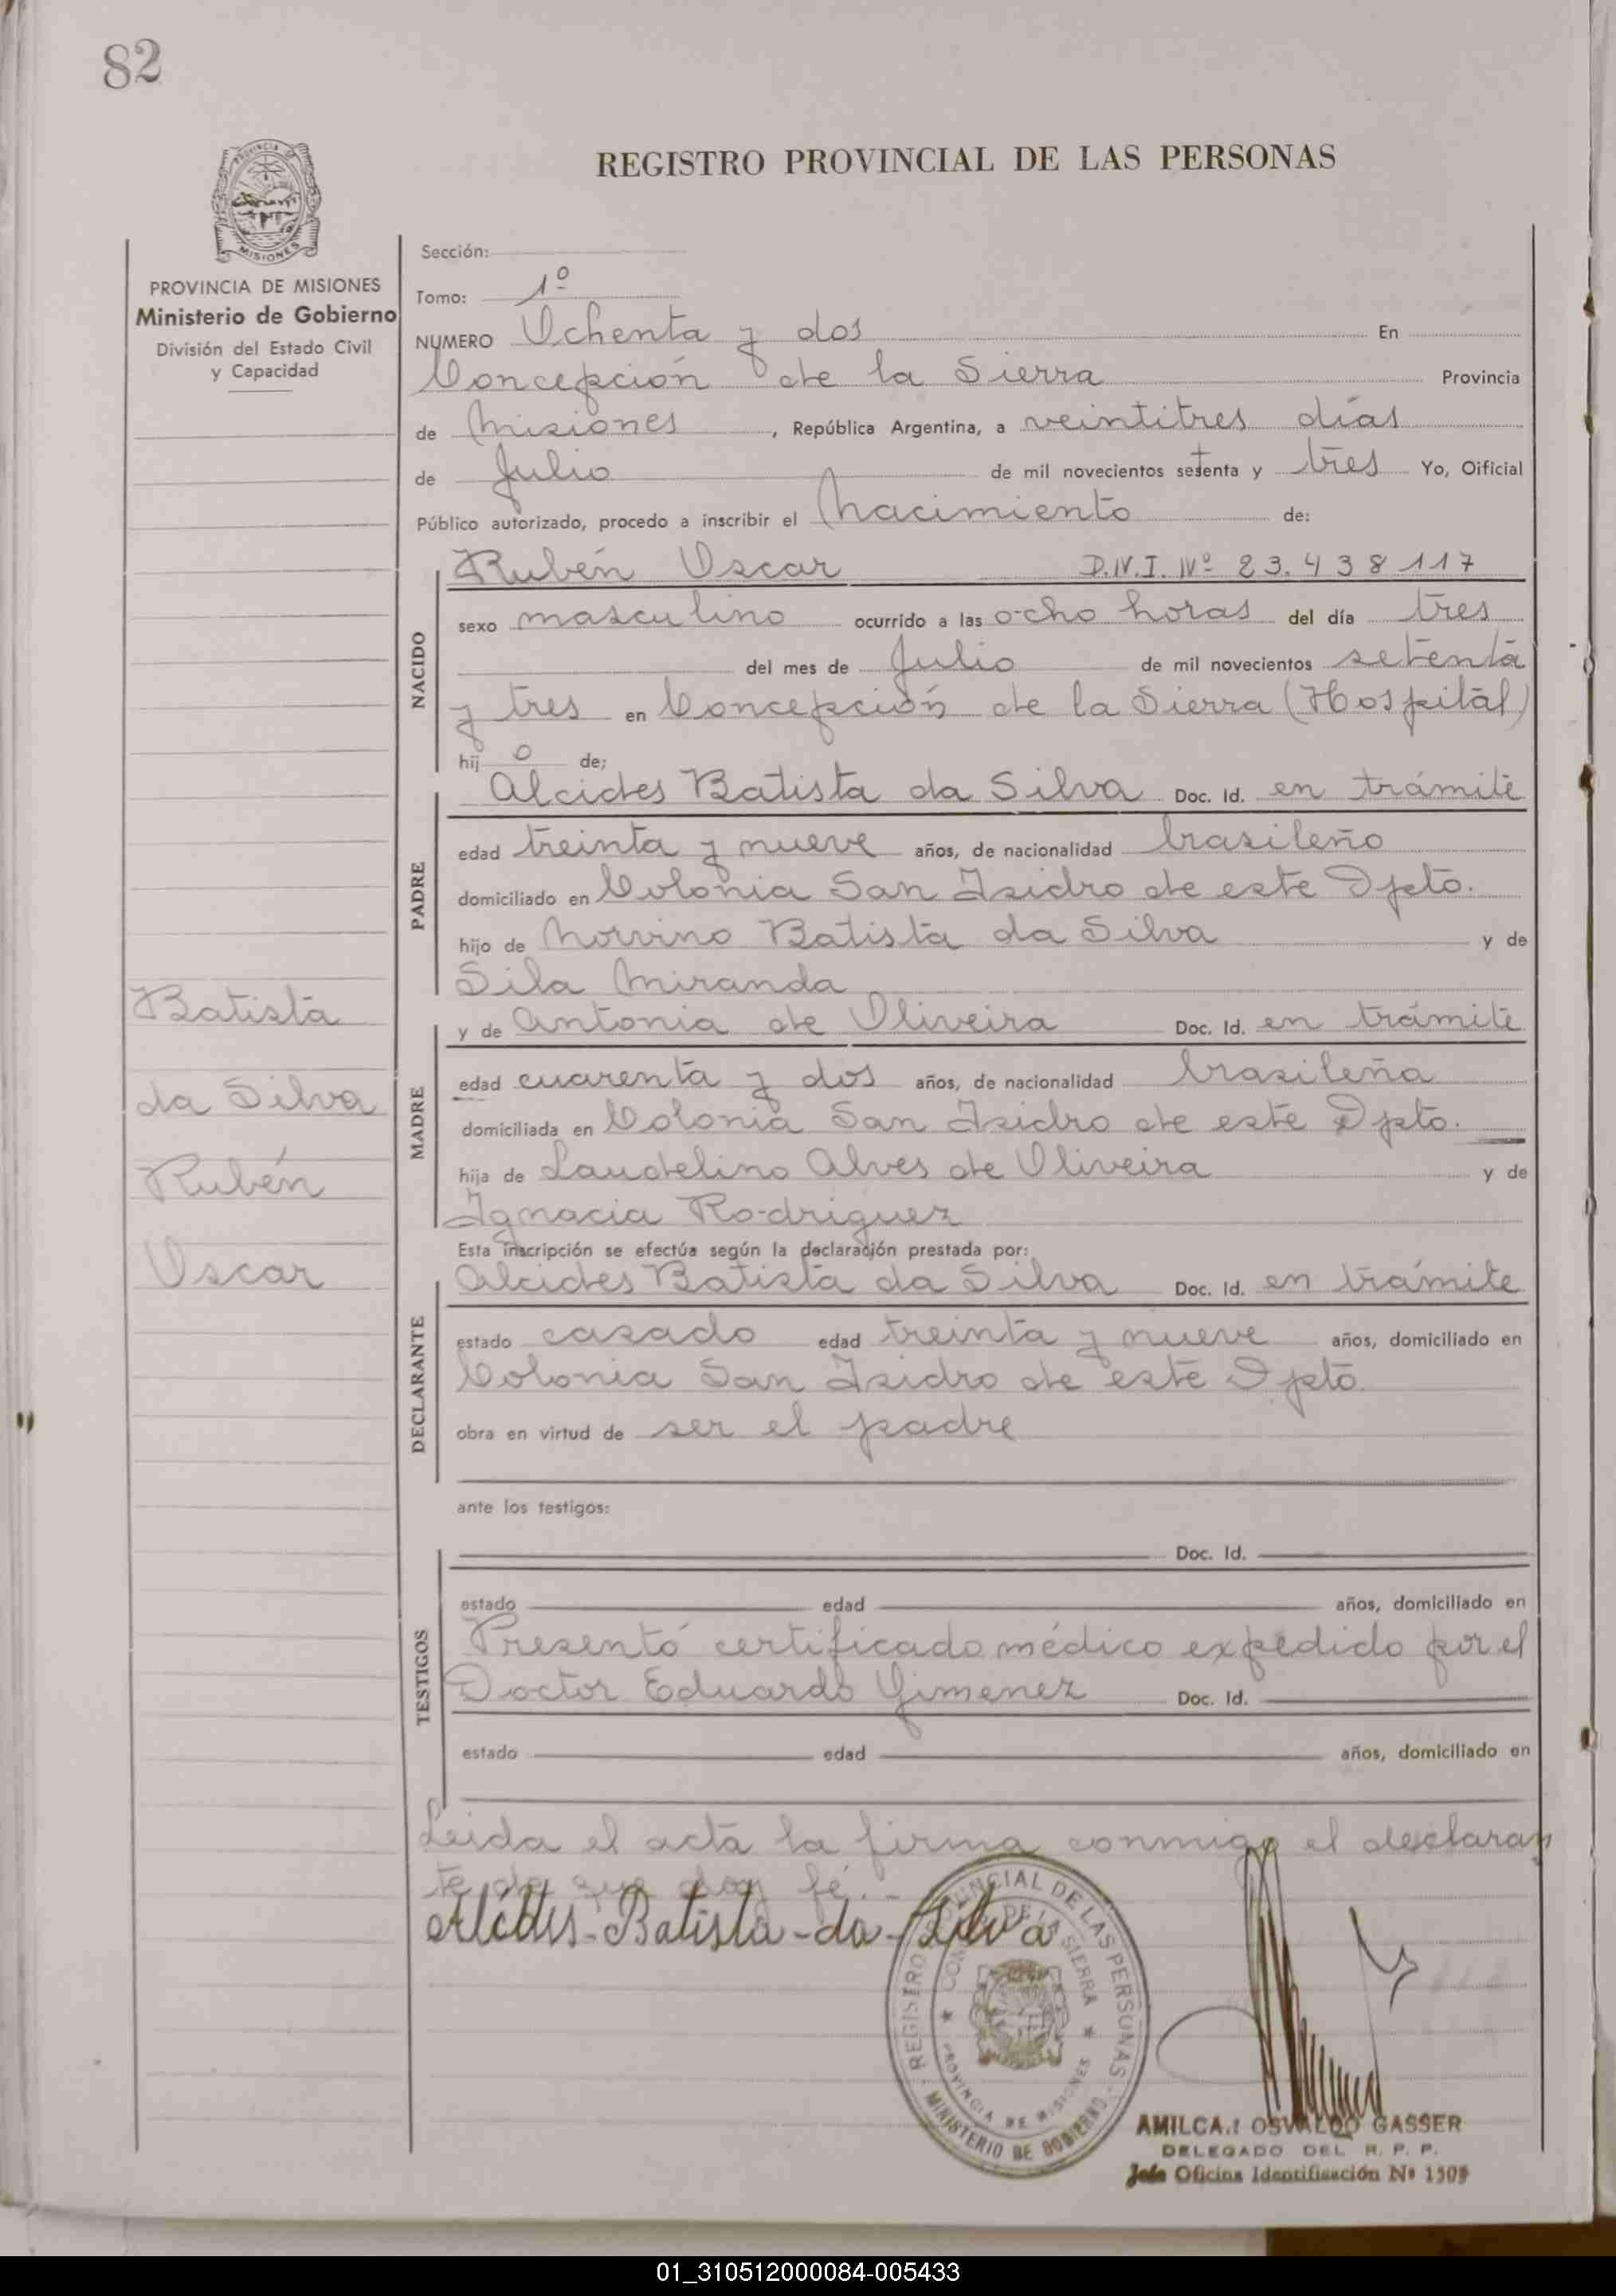 82
REGISTRO PROVINCIAL DE LAS PERSONAS
PROVINCIA DE MISIONES
Ministerio de Gobierno
División del Estado Civil
y Capacidad
Sección:
Tomo: 1º
NUMERO Ochenta y dos En
Concepción de la Sierra Provincia
de Misiones, República Argentina, a veintitres días
de Julio de mil novecientos setenta y tres Yo, Oificial
Público autorizado, procedo a inscribir el Nacimiento de:
NACIDO
Rubén Oscar D.N.I. Nº 23.438117
sexo masculino ocurrido a las ocho horas del día tres
del mes de Julio de mil novecientos setenta
y tres en Concepción de la Sierra (Hospital)
hij o de;
PADRE
Alcides Batista da Silva Doc. Id. en trámite
edad treinta y nueve años, de nacionalidad brasileño
domiciliado en Colonia San Isidro de este Dpto.
hijo de Batista da Silva y de
Sila Miranda
MADRE
y de Antonia de Oliveira Doc. Id. en trámite
edad cuarenta y dos años, de nacionalidad brasileña
domiciliada en Colonia San Isidro de este Dpto.
hija de Laudelino Alves de Oliveira y de
Ignacia Rodriguez
Batista
da Silva
Rubén
Oscar
Esta inscripción se efectúa según la declaración prestada por:
DECLARANTE
Alcides Batista da Silva Doc. Id. en trámite
estado casado edad treinta y nueve años, domiciliado en
Colonia San Isidro de este Dpto.
obra en virtud de ser el padre
ante los testigos:
TESTIGOS
Doc. Id.
estado edad años, domiciliado en
Presentó certificado médico expedido por el
Doctor Eduardo Gimenez Doc. Id.
estado edad años, domiciliado en
Leida el acta la firma conmigo el declaran
te de que doy fé.-
Alcides-Batista-da-Silva
REGISTRO PROVINCIAL DE LAS PERSONAS
MINISTERIO DE GOBIERNO
PROVINCIA DE MISIONES
AMILCAR OSVALDO GASSER
DELEGADO DEL R. P. P.
Jefe Oficina Identificación Nº 1509
01_310512000084-005433